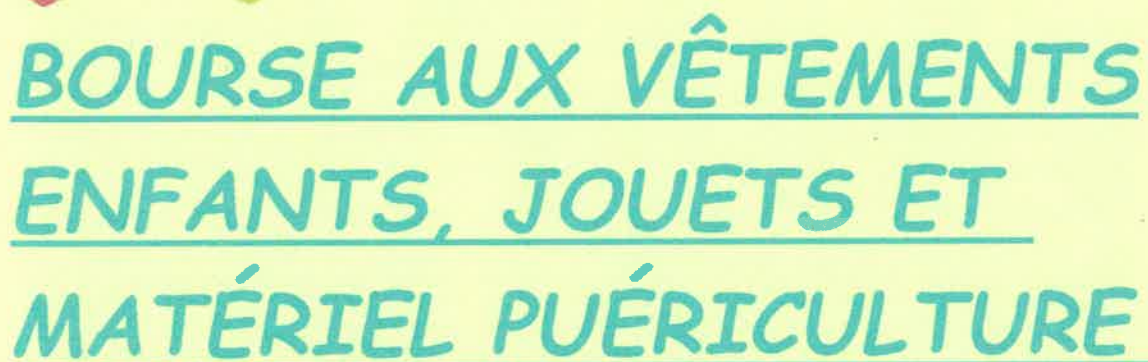 BOURSE AUX VÊTEMENTS
ENFANTS, JOUETS ET
MATÉRIEL PUÉRICULTURE